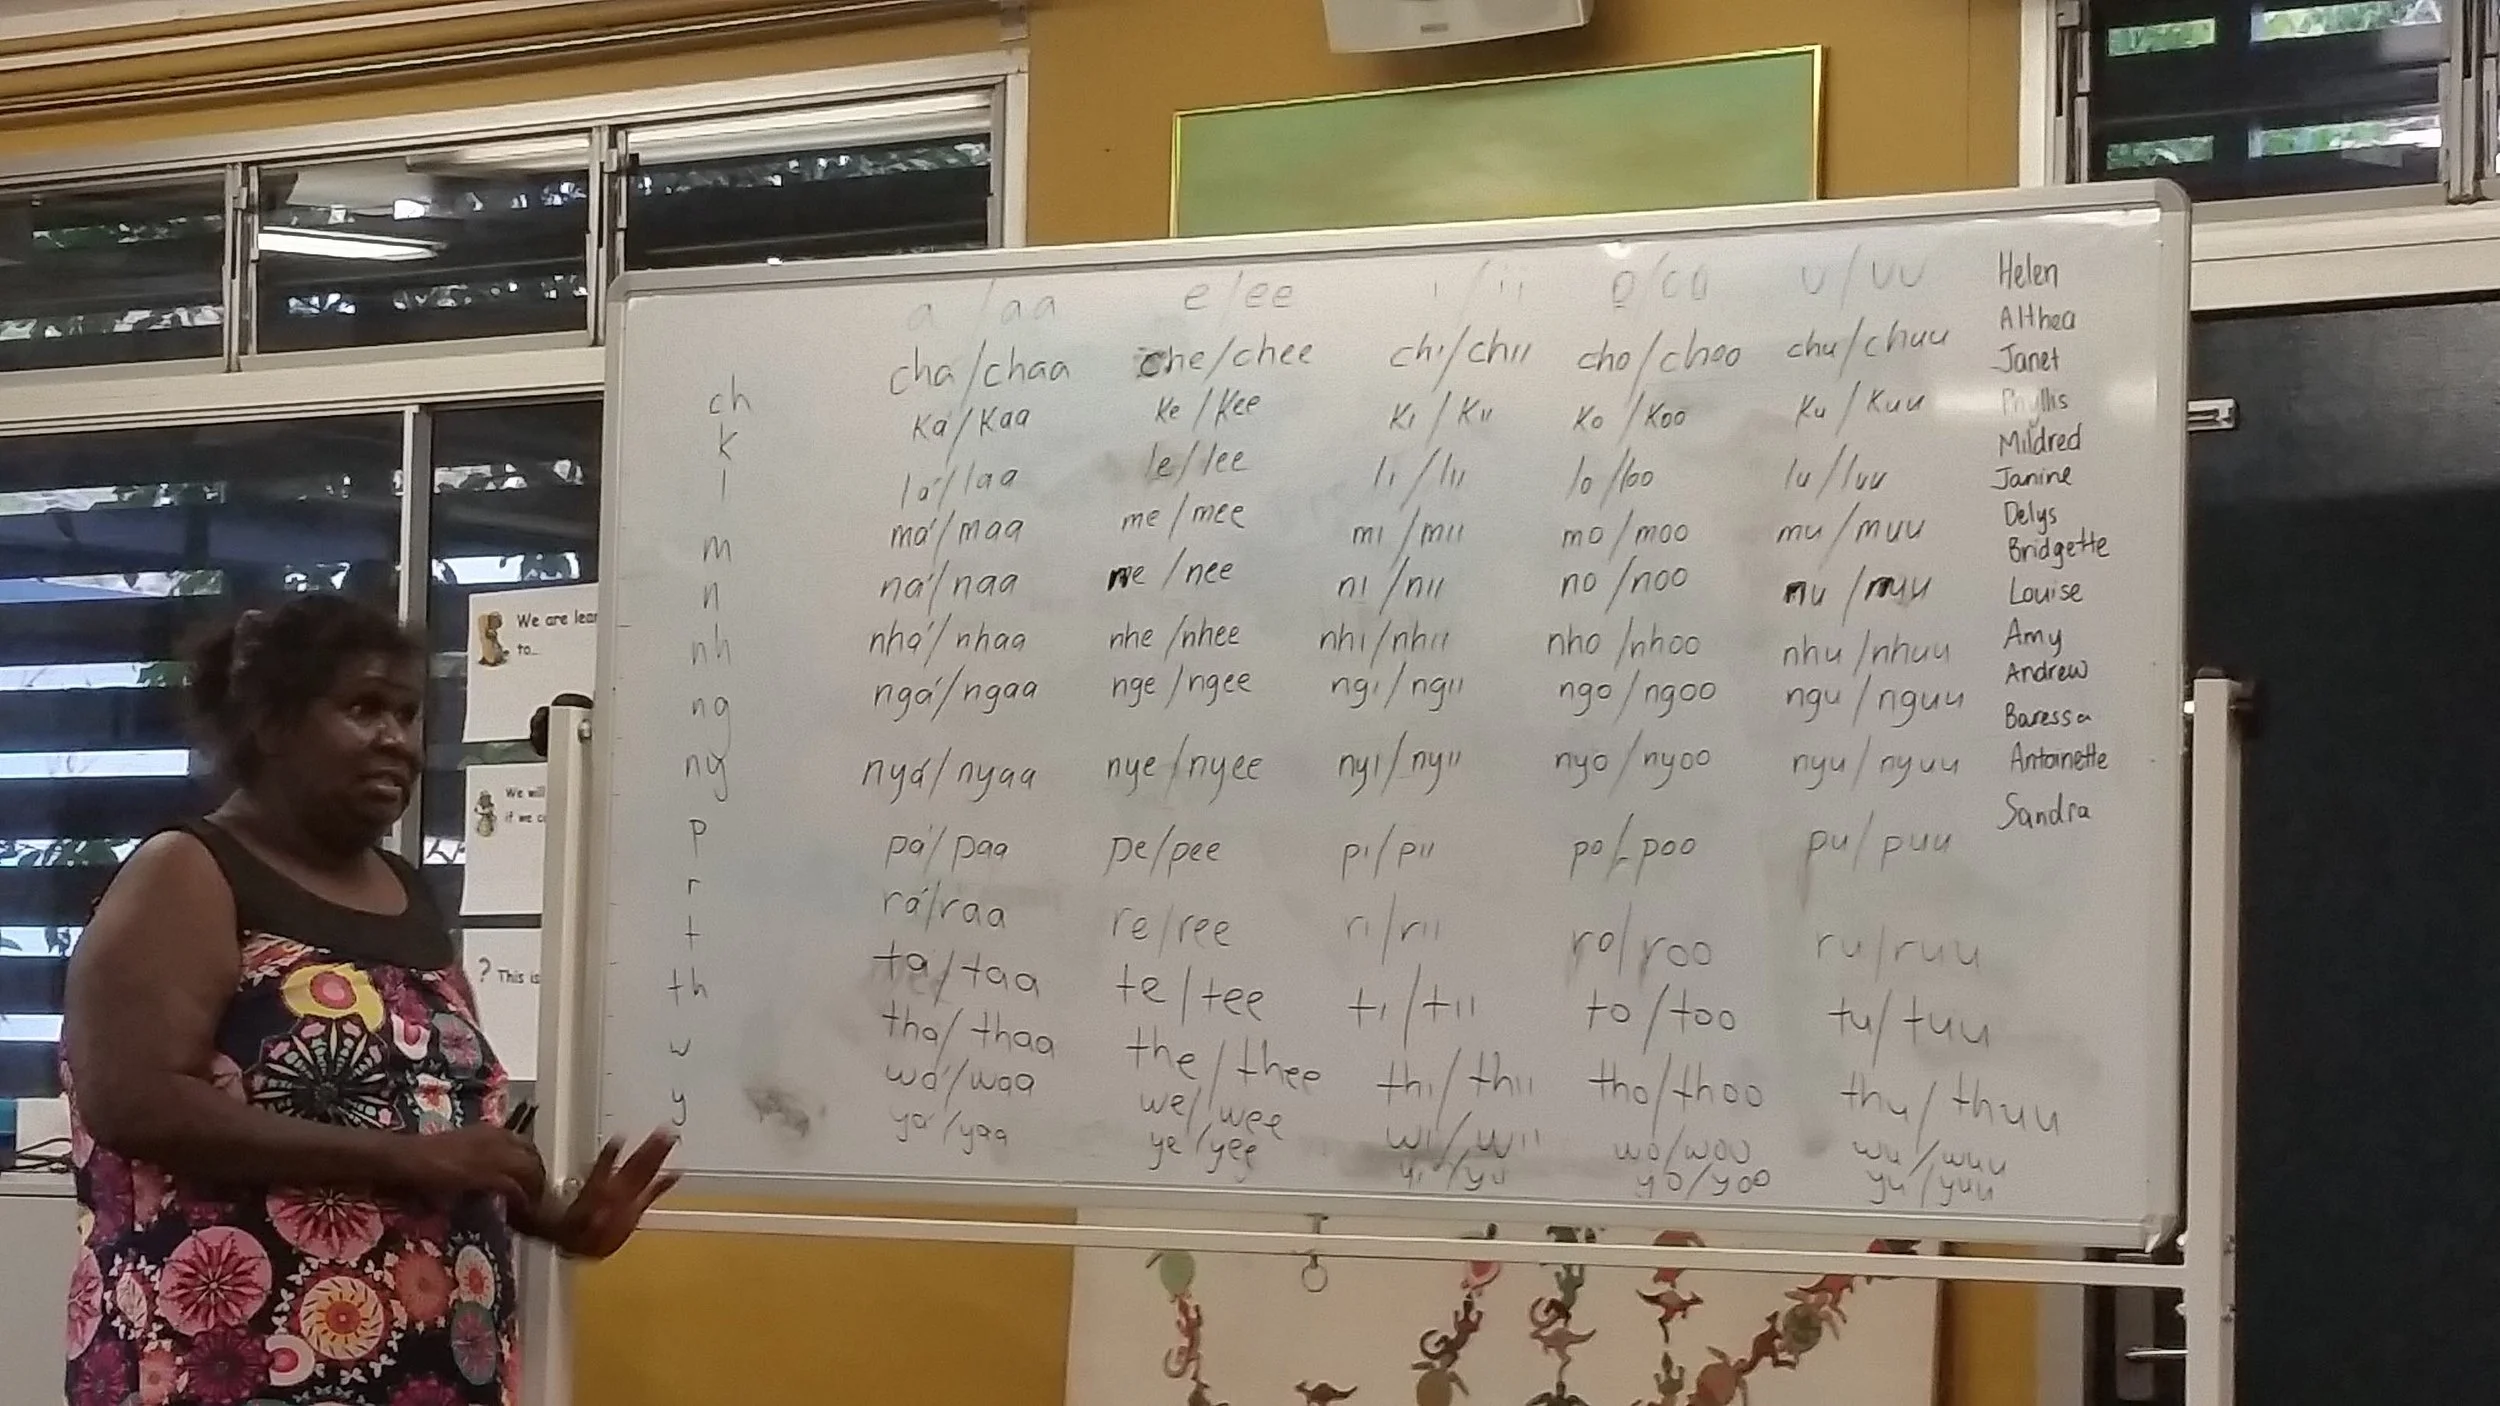 a/aa e/ee i/ii o/oo u/uu
ch cha/chaa che/chee chi/chii cho/choo chu/chuu
k ka/kaa ke/kee ki/kii ko/koo ku/kuu
l la/laa le/lee li/lii lo/loo lu/luu
m ma/maa me/mee mi/mii mo/moo mu/muu
n na/naa ne/nee ni/nii no/noo nu/nuu
nh nha/nhaa nhe/nhee nhi/nhii nho/nhoo nhu/nhuu
ng nga/ngaa nge/ngee ngi/ngii ngo/ngoo ngu/nguu
ny nya/nyaa nye/nyee nyi/nyii nyo/nyoo nyu/nyuu
p pa/paa pe/pee pi/pii po/poo pu/puu
r ra/raa re/ree ri/rii ro/roo ru/ruu
t ta/taa te/tee ti/tii to/too tu/tuu
th tha/thaa the/thee thi/thii tho/thoo thu/thuu
w wa/waa we/wee wi/wii wo/woo wu/wuu
y ya/yaa ye/yee yi/yii yo/yoo yu/yuu
Helen
Althea
Janet
Phyllis
Mildred
Janine
Delys
Bridgette
Louise
Amy
Andrew
Baressa
Antoinette
Sandra
We are
to...
We will
if we
? This is